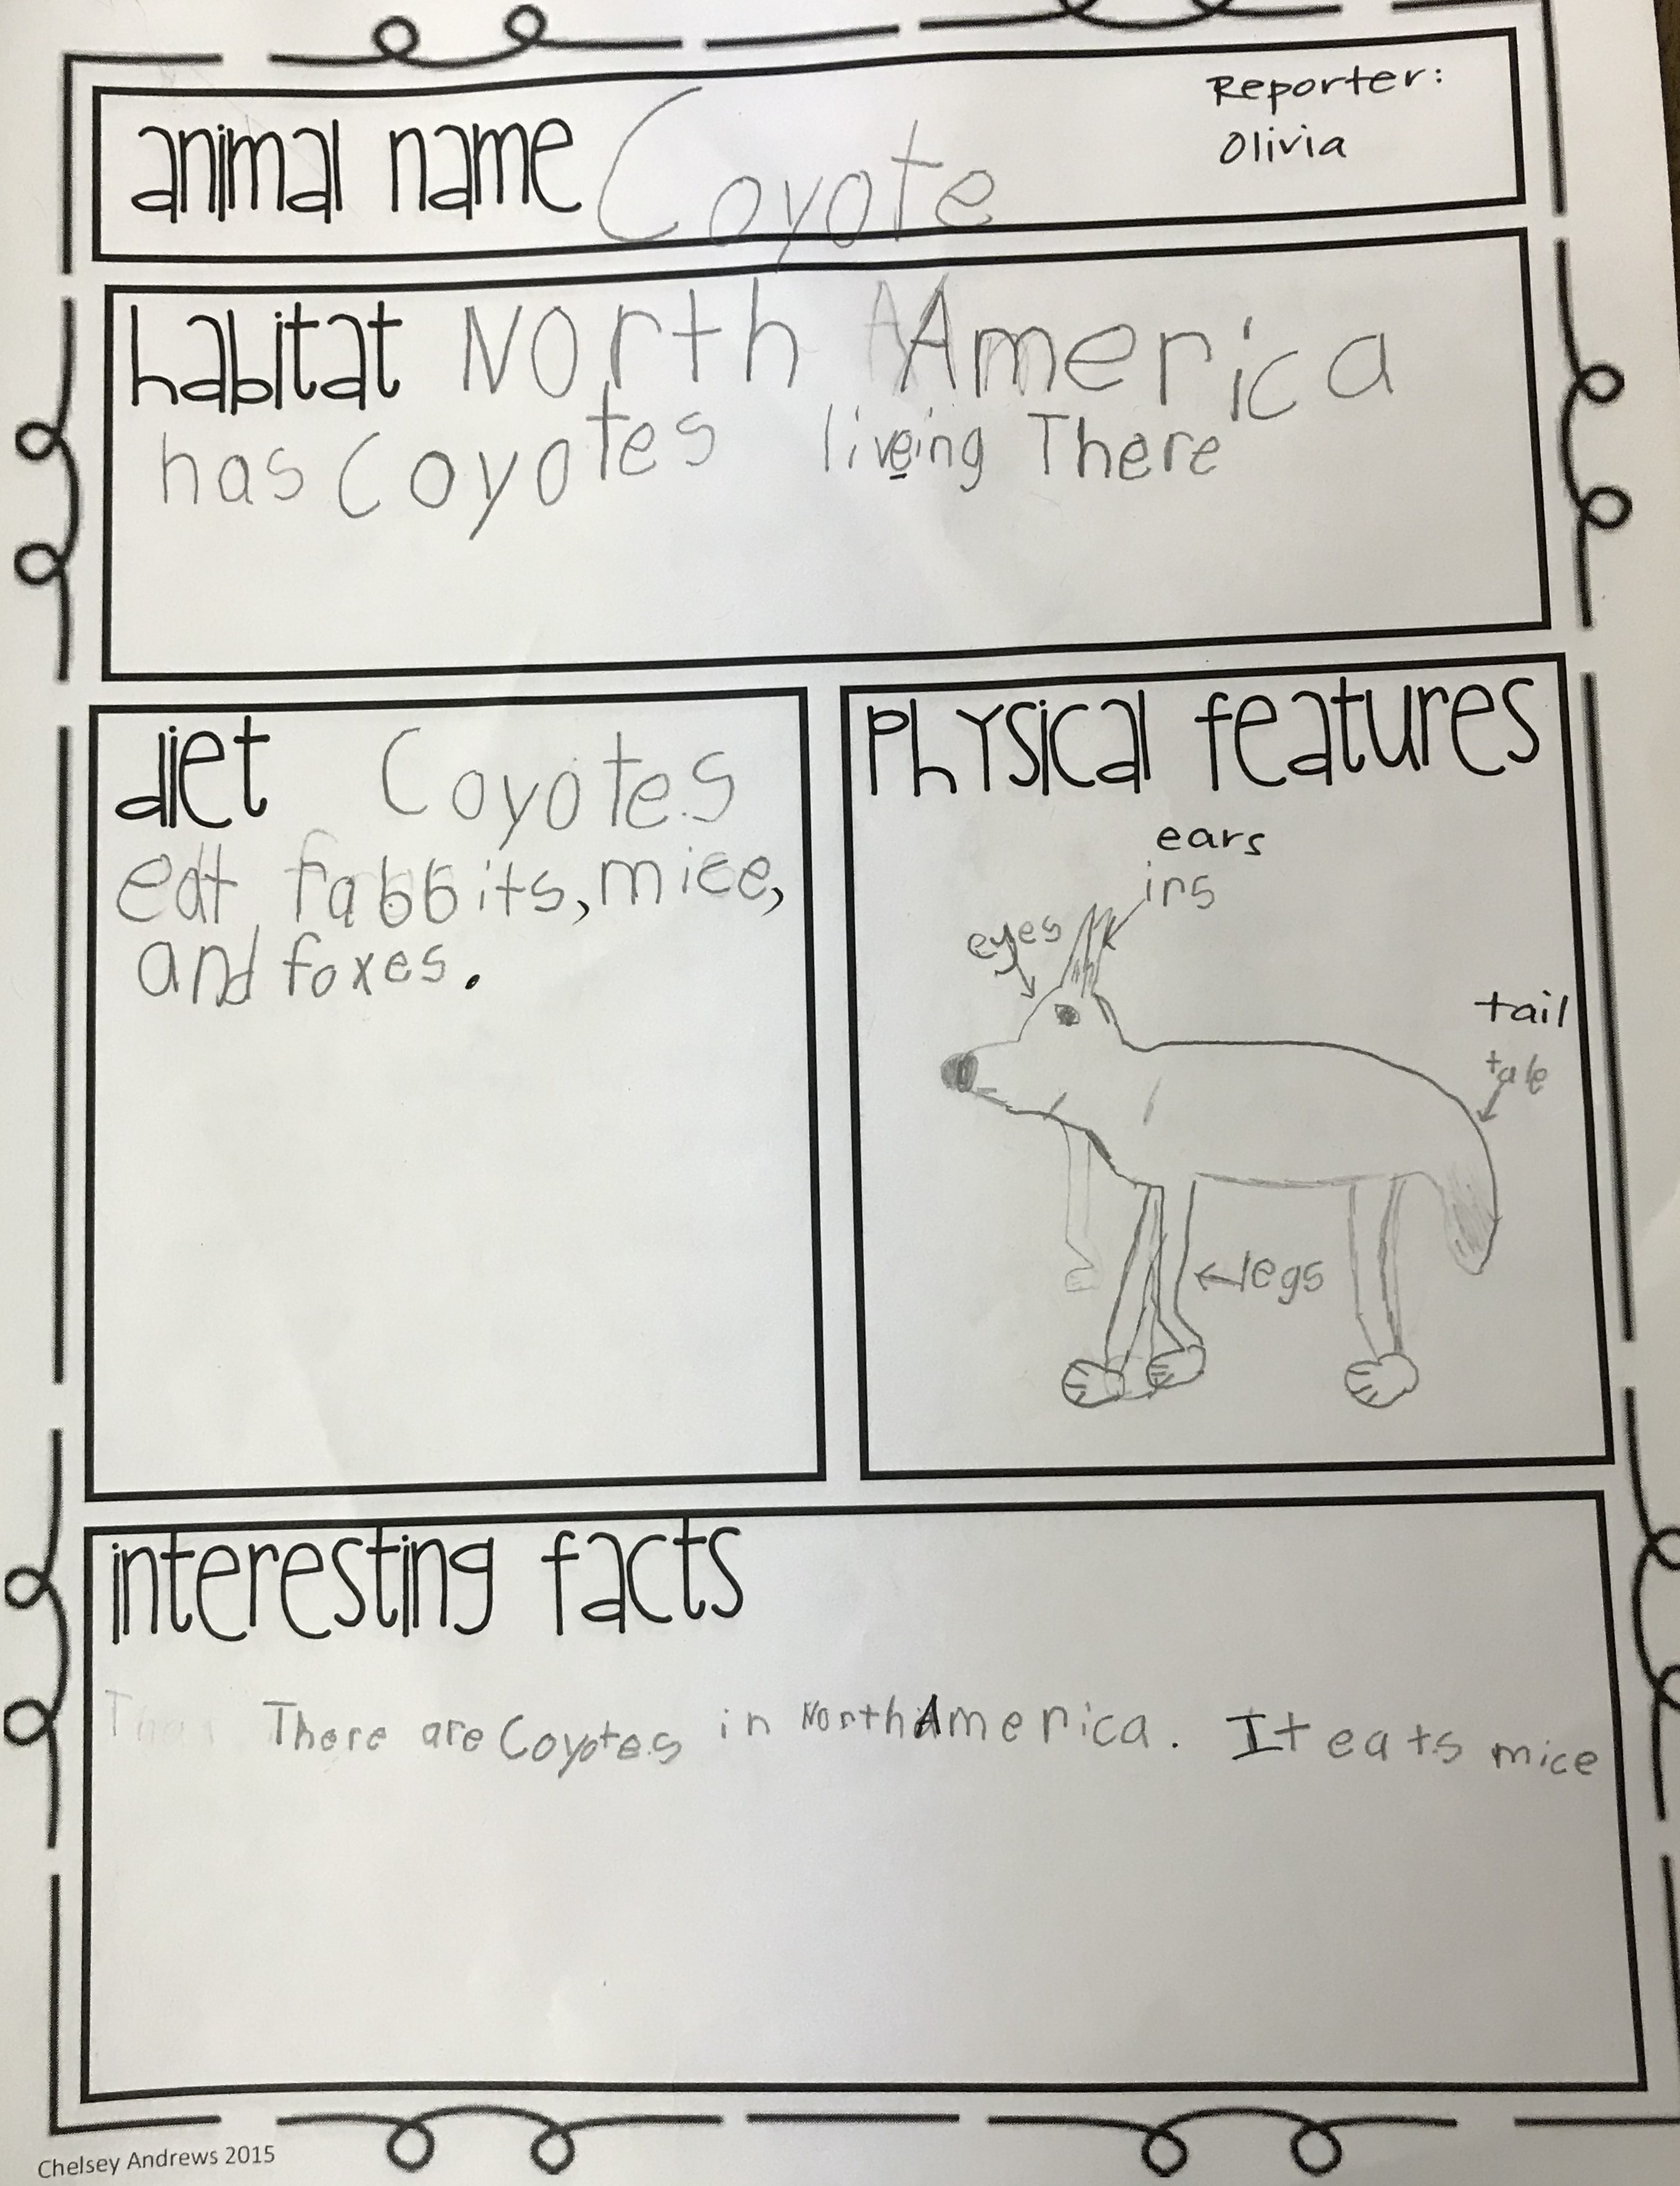 Reporter:
Olivia
animal name Coyote
habitat North America
has Coyotes liveing There
diet Coyotes
eat rabbits, mice,
and foxes.
Physical features
ears
irs
eyes
tail
tale
legs
interesting facts
There are Coyotes in North America. It eats mice
Chelsey Andrews 2015